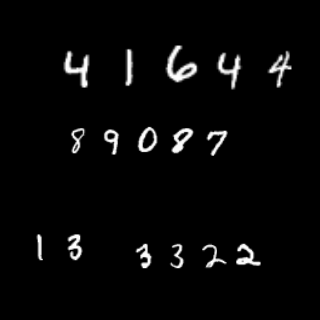 41644
89087
13 3322